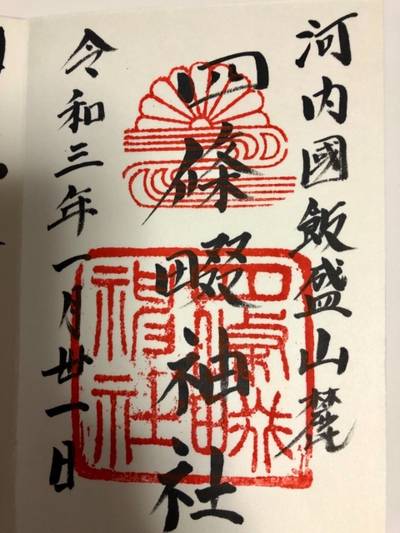 河内國飯盛山麓
四條畷神社
令和三年一月廿一日
四條畷神社